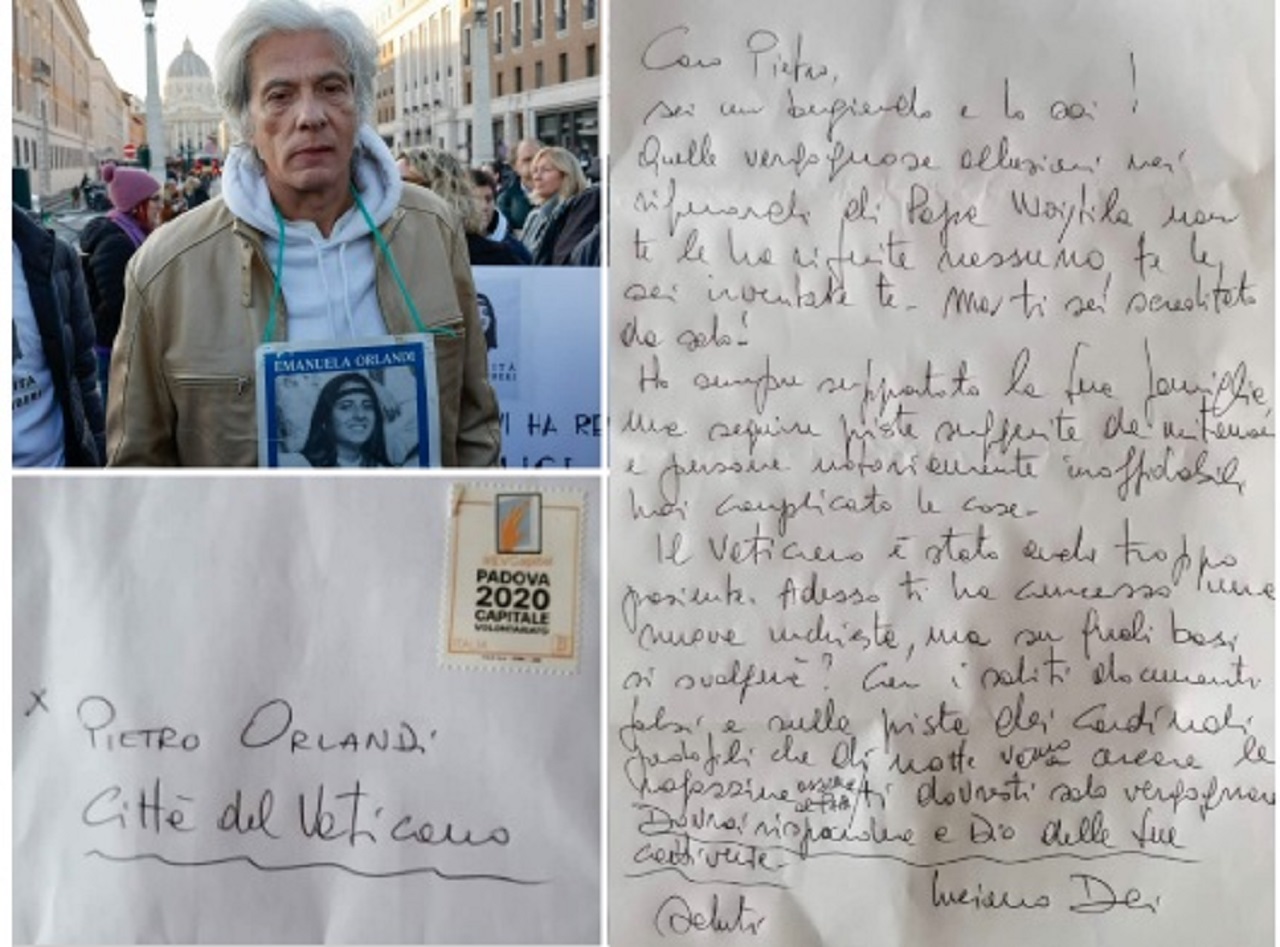 EMANUELA ORLANDI
VI HA RE
PADOVA
2020
CAPITALE
VOLONTARIATO
ITALIA
B
x PIETRO ORLANDI
Città del Vaticano
Caro Pietro,
sei un bugiardo e lo sai!
Quelle vergognose allusioni nei
riguardi di Papa Wojtila non
te le ha riferite nessuno, te le
sei inventate te. Ma ti sei screditato
da solo!
Ho sempre supportato la tua famiglia,
ma seguire piste suggerite da mitomani
e persone notoriamente inaffidabili
hai complicato le cose.
Il Vaticano è stato anche troppo
paziente. Adesso ti ha concesso una
nuova inchiesta, ma su quali basi
si svolgerà? Con i soliti documenti
falsi e sulle piste dei Cardinali
pedofili che di notte vanno a cercare le
ragazzine assieme al Papa, ti dovresti solo vergognare
Dovrai rispondere a Dio delle tue
cattiverie.
Saluti
Luciano Dei